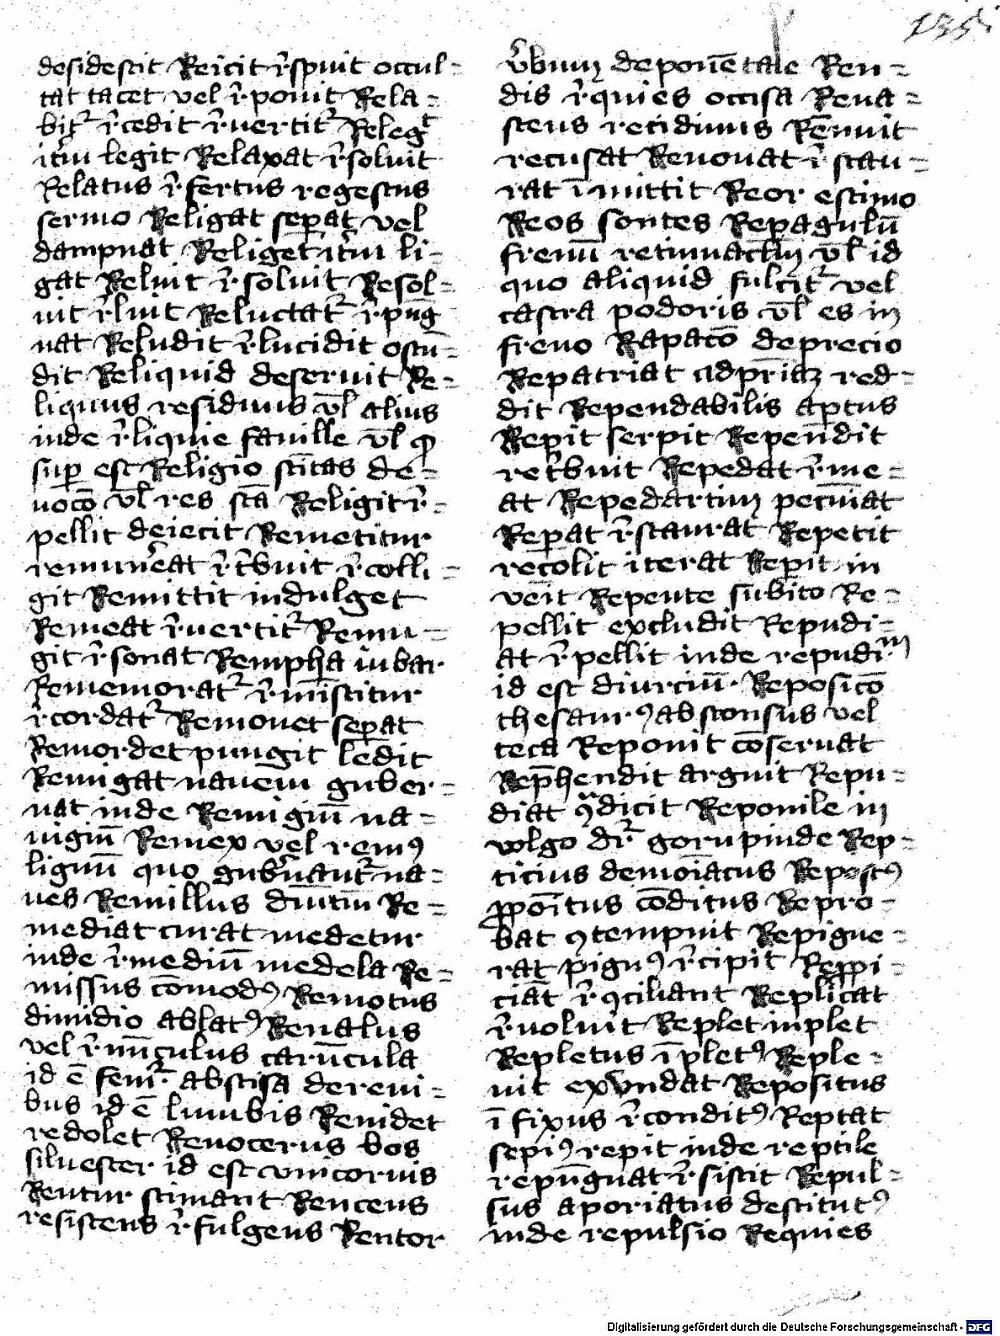 135
desidescit Reicit r̄spuit occul=
tat tacet vel r̄ponit Rela=
bit̄ r̄cedit r̄uertit̄ Relegt
it̄m legit Relaxat r̄soluit
Relatus r̄fertus regestus
sermo Religat sep̄at vel
dampnat Religet it̄m li=
gat Reluit r̄soluit Resol=
uit r̄luit Reluctat̄ r̄pūg
nat Reludit r̄lucidit ostn̄=
dit Reliquid deseruit Re=
liquus residuus vl̄ alius
inde r̄liquie fauille vl̄ qd
suꝑ est Religio sc̄itas de=
uocō vl̄ res sc̄a Religit r̄=
pellit deiecit Remetitur
remun̄eat r̄t̄buit r̄colli=
git Remittit indulget
Remeat r̄uertit̄ Remu=
git r̄sonat Rempha iubar
Rememorat̄ r̄miscitur
r̄cordat̄ Remouet sep̄at
Remordet pungit ledit
Remigat nauem guber=
nat inde Remigiū na=
uigiū Remex vel remꝰ
lignū quo gub̄nant̄ na=
ues Remillus diutiū Re=
mediat curat medetur
inde r̄mediū medela Re=
missus cōmodꝰ Remotus
dimidio ablatꝰ Renalus
vel r̄nūculus carūcula
id ē abscisa de reni=
bus id ē lumbis Renidet
redolet Renocerus bos
siluester id est vnicornis
Rentur stimant Rencens
resistens r̄fulgens Rentor
v̄bum deponētale Ren=
dis r̄quies occisa Rena=
scens recidiuus Rēnuit
recusat Renouat r̄stau=
rat īmittit Reor estimo
Reos sontes Repagulū
frenū retinnaclm̄ vl̄ id
quo aliquid fulcit̄ vel
castra podoris vl̄ es in
freno Rapacō de precio
Repatriat ad pr̄iaȝ red=
dit Rependabilis aptus
Repit serpit Repēndit
ret̄buit Repedat r̄me=
at Repedartim pecm̄at
Rep̄at r̄staurat Repetit
recolit iterat Rep̄it in
vēit Repente subito Re=
pellit excludit Repudi=
at r̄pellit inde repudiū
id est diurciū Reposicō
thesaurꝰ absconsus vel
teca Reponit cōseruat
Rep̄hendit arguit Repu=
diat ꝯ̄dicit Reponile in
volgo dr̄ inde Rep=
ticius demoīacus Repostꝰ
ꝓpoītus cōditus Repro=
bat ꝯtempnit Repigne=
rat pignꝰ r̄cipit Reꝓpi=
ciāt r̄ꝯciliant Replicat
r̄uoluit Replet inplet
Repletus īpletꝰ Reple=
uit exvndat Repositus
ī fixus r̄conditꝰ Reptat
sepiꝰ repit inde reptile
repūgnat r̄sistit Repul=
sus aporiatus destitutꝰ
inde repulsio Requies
Digitalisierung gefördert durch die Deutsche Forschungsgemeinschaft - DFG